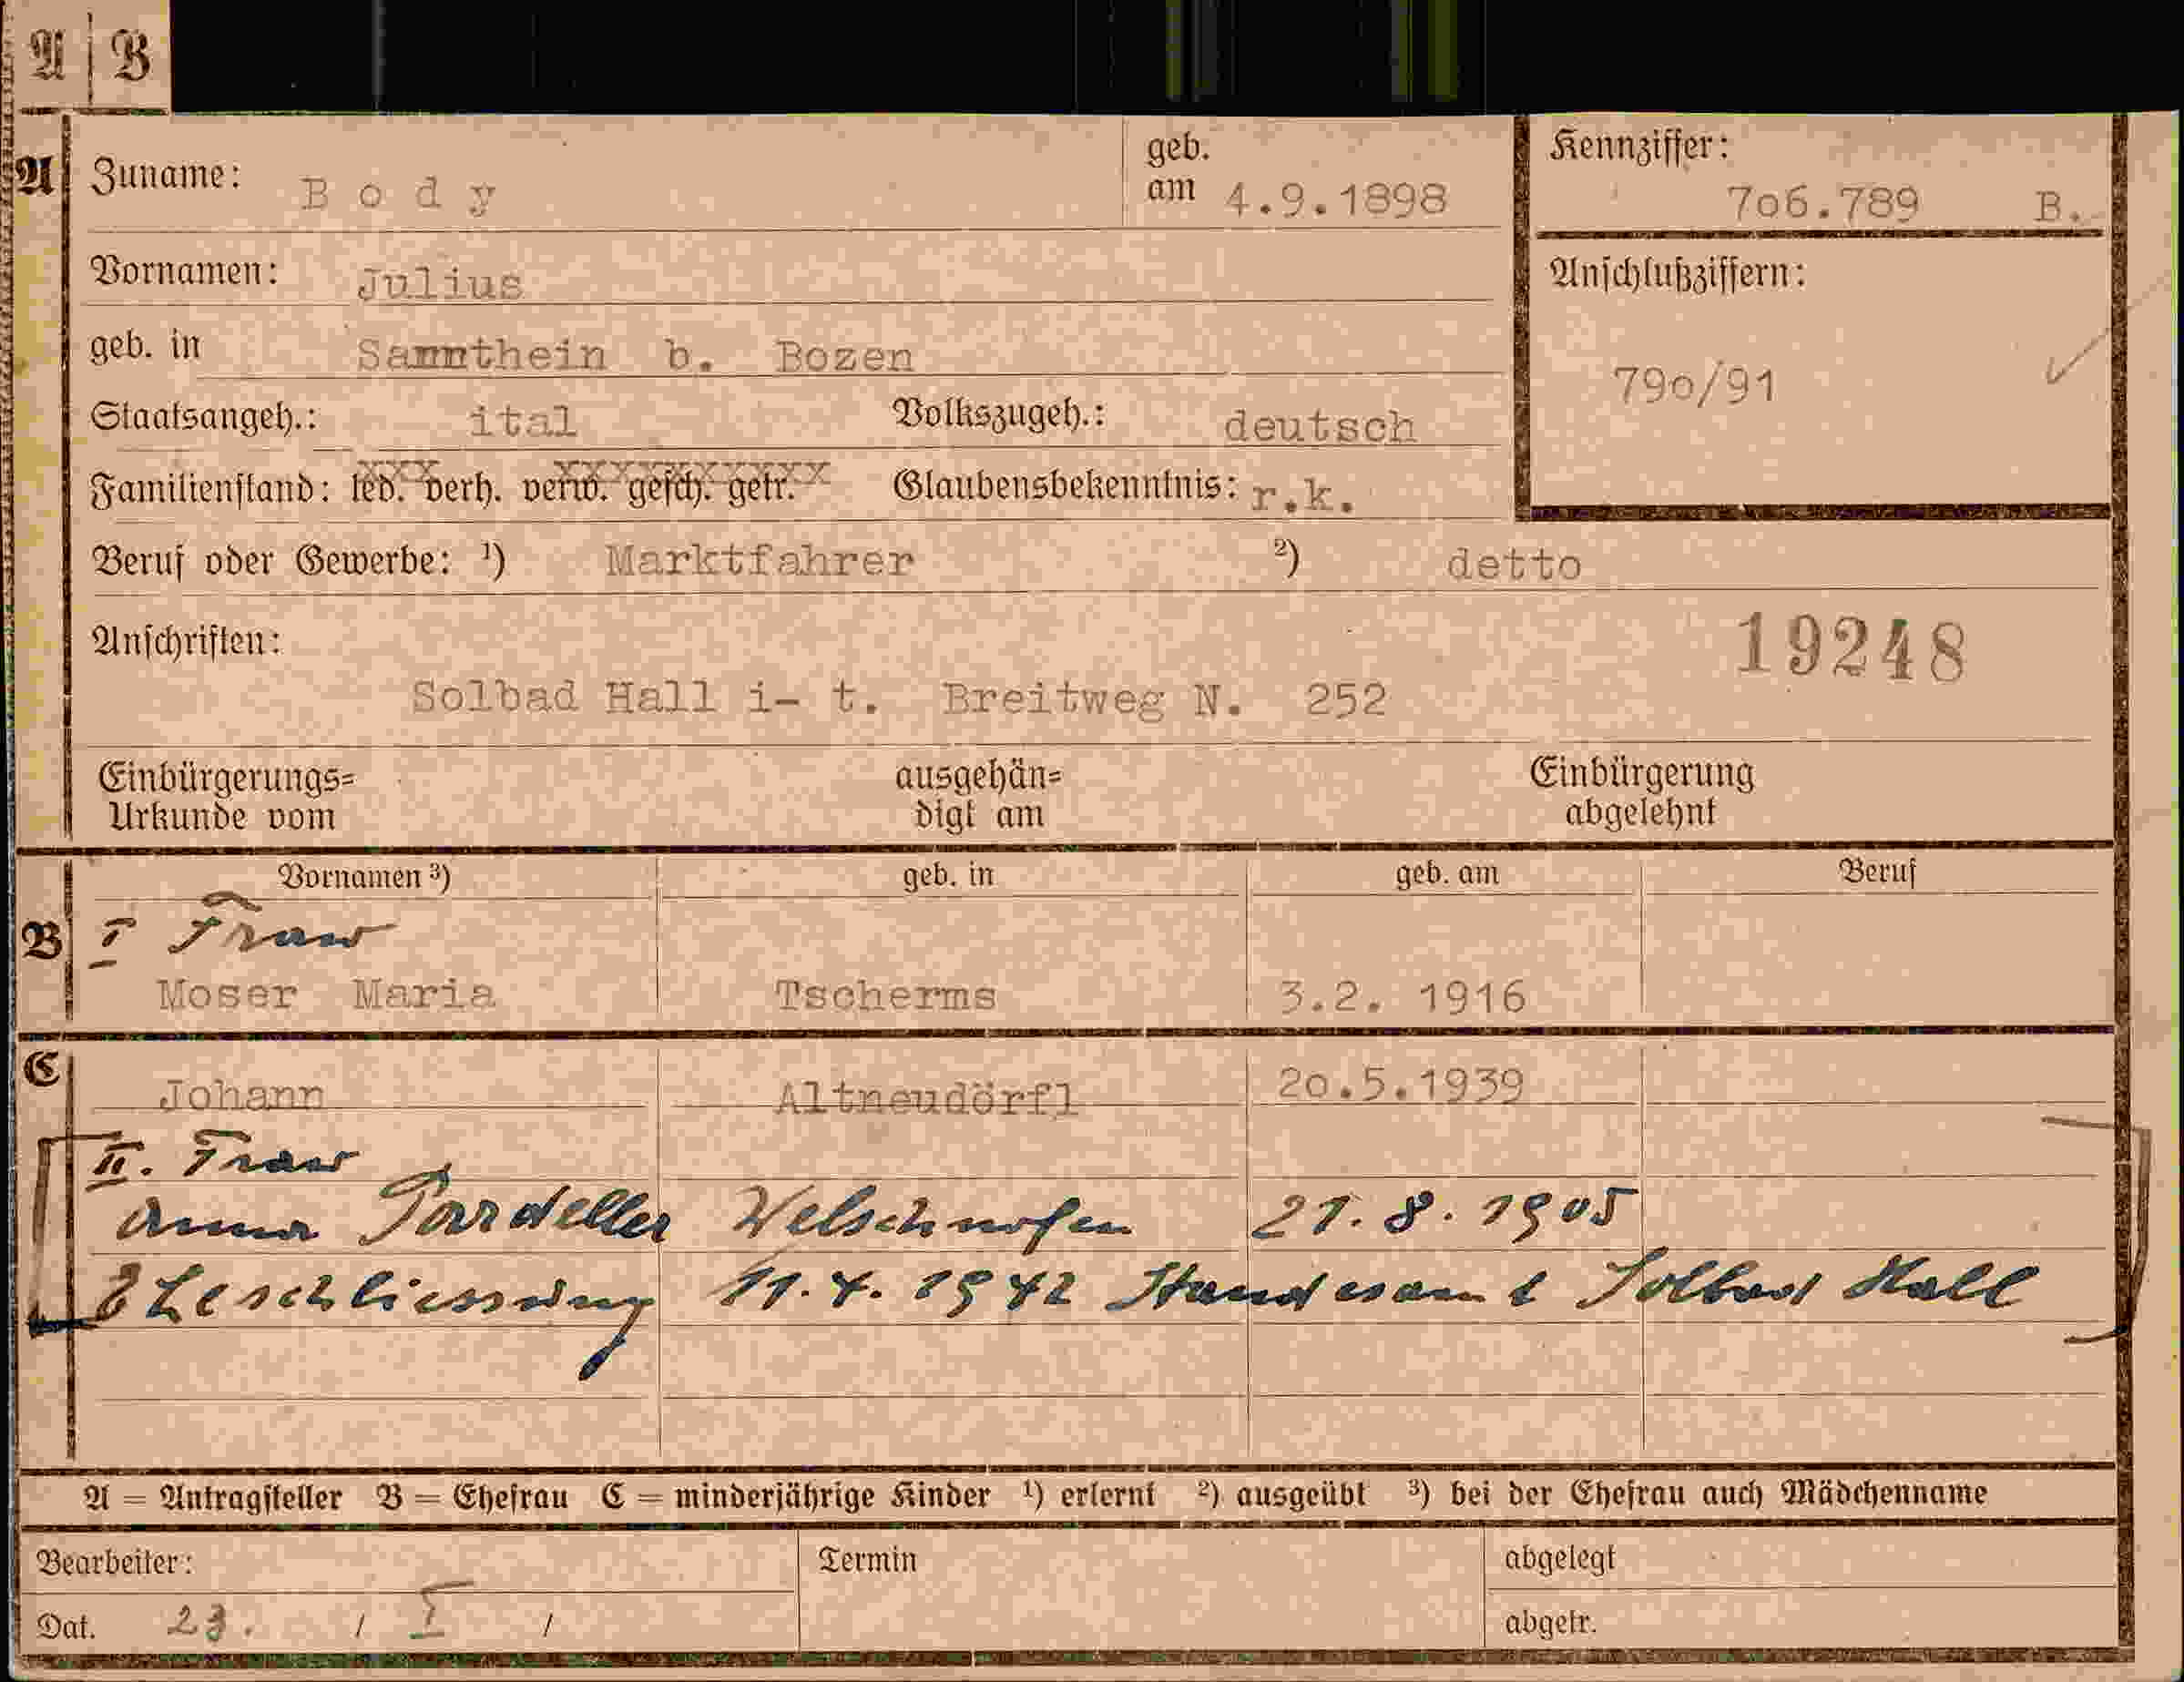 A B
A Zuname: Body geb. am 4.9.1898 Kennziffer: 7o6.789 B.
Vornamen: Julius Anschlußziffern:
geb. in Sarnthein b. Bozen 79o/91
Staatsangeh.: ital Volkszugeh.: deutsch
Familienstand: led. verh. verw. gesch. getr. Glaubensbekenntnis: r.k.
Beruf oder Gewerbe: ¹) Marktfahrer ²) detto
Anschriften: 19248
Solbad Hall i- t. Breitweg N. 252
Einbürgerungs= Urkunde vom ausgehän= digt am Einbürgerung abgelehnt
Vornamen ³) geb. in geb. am Beruf
B I Frau
Moser Maria Tscherms 3.2. 1916
C Johann Altneudörfl 2o.5.1939
II. Frau
Anna Pardeller Welschnofen 21. 8. 1905
Eheschliessung 11. 4. 1942 Standesamt Solbad Hall
A = Antragsteller B = Ehefrau C = minderjährige Kinder ¹) erlernt ²) ausgeübt ³) bei der Ehefrau auch Mädchenname
Bearbeiter: Termin abgelegt
Dat. 23. / I / abgetr.